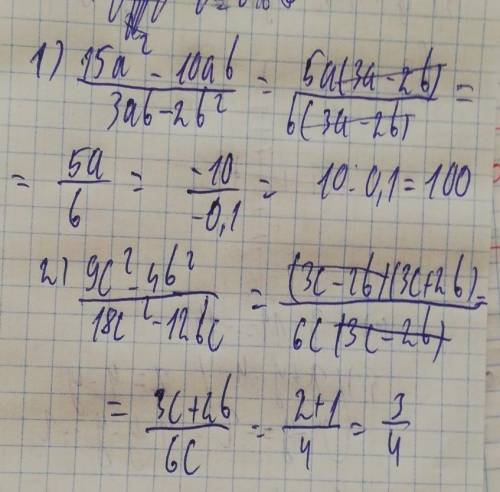 1) (15a² - 10ab)/(3ab - 2b²) = (5a(3a - 2b))/(b(3a - 2b)) =
= 5a/b = -10/-0,1 = 10 : 0,1 = 100
2) (9c² - 4b²)/(18c² - 12bc) = ((3c - 2b)(3c + 2b))/(6c(3c - 2b)) =
= (3c + 2b)/6c = (2+1)/4 = 3/4